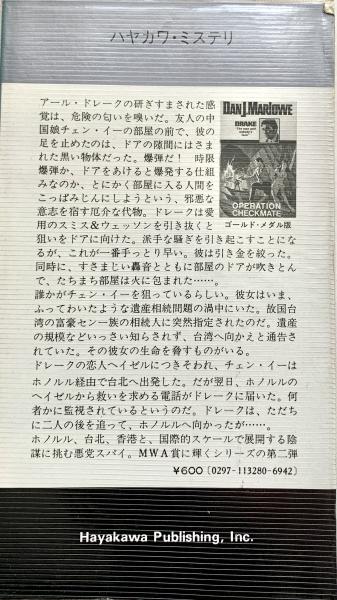 ハヤカワ・ミステリ
アール・ドレークの研ぎすまされた感
覚は、危険の匂いを嗅いだ。友人の中
国娘チェン・イーの部屋の前で、彼の
足を止めたのは、ドアの隙間にはさま
れた黒い物体だった。爆弾だ！ 時限
爆弾か、ドアをあけると爆発する仕組
みなのか、とにかく部屋に入る人間を
こっぱみじんにしようという、邪悪な
意志を宿す厄介な代物。ドレークは愛
用のスミス&ウェッソンを引き抜くと
狙いをドアに向けた。派手な騒ぎを引き起こすことにな
るが、これが一番手っとり早い。彼は引き金を絞った。
同時に、すさまじい轟音とともに部屋のドアが吹きとん
で、たちまち部屋は火に包まれた……。
誰かがチェン・イーを狙っているらしい。彼女はいま、
ふってわいたような遺産相続問題の渦中にいた。故国台
湾の富豪セン一族の相続人に突然指定されたのだ。遺産
の規模などいっさい知らされず、台湾へ向かえと通告さ
れていた。その彼女の生命を脅すものがいる。
ドレークの恋人ヘイゼルにつきそわれ、チェン・イーは
ホノルル経由で台北へ出発した。だが翌日、ホノルルの
ヘイゼルから救いを求める電話がドレークに届いた。何
者かに監視されているというのだ。ドレークは、ただち
に二人の後を追って、ホノルルへ向かったが……。
ホノルル、台北、香港と、国際的スケールで展開する陰
謀に挑む悪党スパイ。MWA賞に輝くシリーズの第二弾
DAN J. MARLOWE
DRAKE
OPERATION
CHECKMATE
ゴールド・メダル版
￥600 〔0297-113280-6942〕
Hayakawa Publishing, Inc.